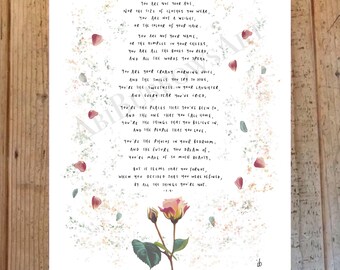 YOU ARE NOT YOUR AGE,
NOR THE SIZE OF CLOTHES YOU WEAR,
YOU ARE NOT A WEIGHT,
OR THE COLOUR OF YOUR HAIR.
YOU ARE NOT YOUR NAME,
OR THE DIMPLES IN YOUR CHEEKS,
YOU ARE ALL THE BOOKS YOU READ,
AND ALL THE WORDS YOU SPEAK,
YOU ARE YOUR CROAKY MORNING VOICE,
AND THE SMILES YOU TRY TO HIDE,
YOU'RE THE SWEETNESS IN YOUR LAUGHTER,
AND EVERY TEAR YOU'VE CRIED,
YOU'RE THE PLACES THAT YOU'VE BEEN TO,
AND THE ONE THAT YOU CALL HOME,
YOU'RE THE THINGS YOU BELIEVE IN,
AND THE PEOPLE THAT YOU LOVE,
YOU'RE THE PHOTOS IN YOUR BEDROOM,
AND THE FUTURE YOU DREAM OF,
YOU'RE MADE OF SO MUCH BEAUTY,
BUT IT SEEMS THAT YOU FORGOT,
WHEN YOU DECIDED THAT YOU WERE DEFINED,
BY ALL THE THINGS YOU'RE NOT.